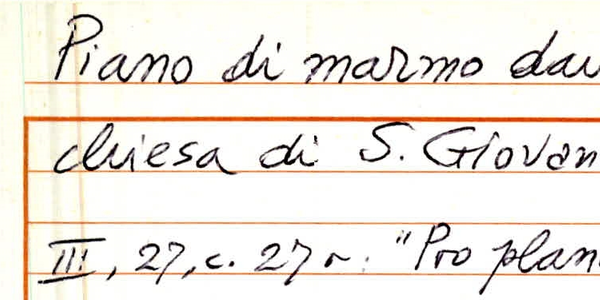 Piano di marmo dav
chiesa di S. Giovan
III, 27, c. 27 r: "Pro plan